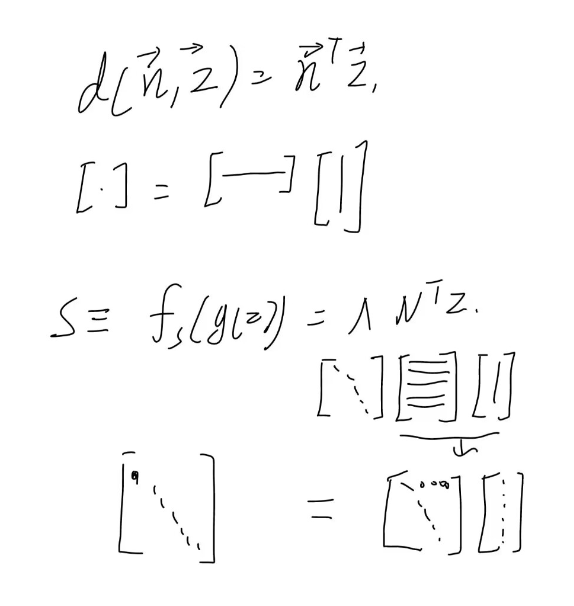 d(n⃗, z⃗) = n⃗ᵀz⃗,
[·] = [—] [|]
S ≡ f_s(g(z)) = Λ Nᵀz.